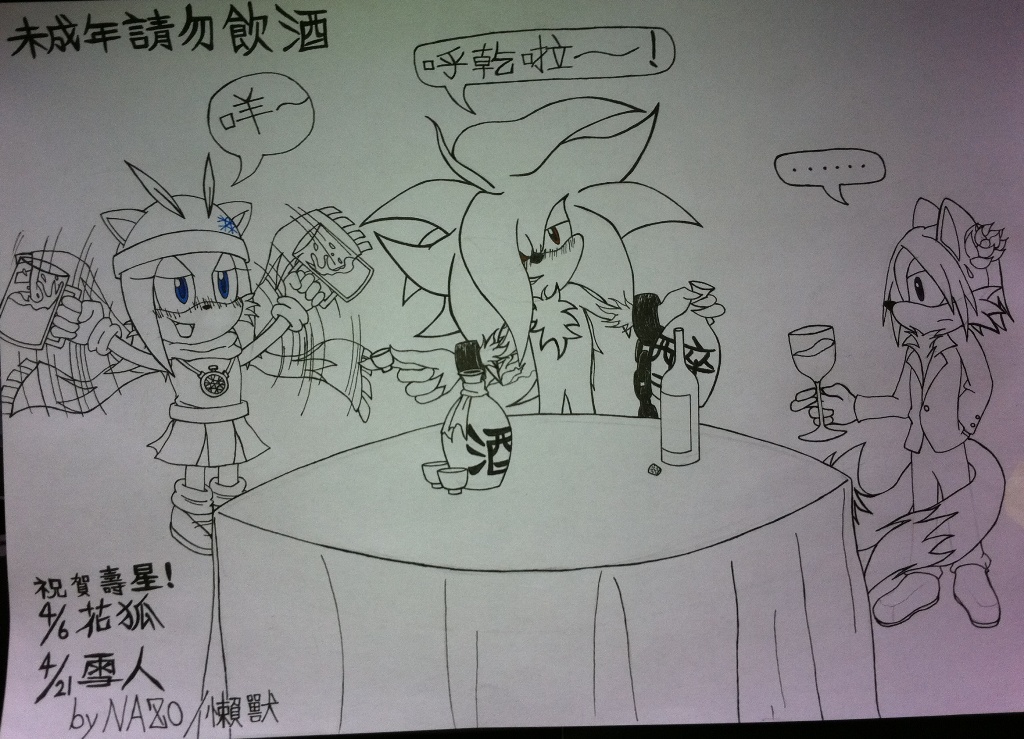 未成年請勿飲酒
咩~
呼乾啦~~!
......
酒
祝賀壽星!
4/6 枯狐
4/21 雪人
by NAZO/懶獸